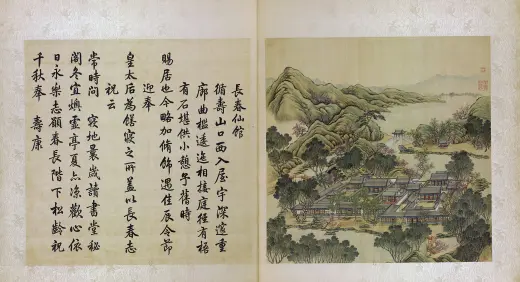 長春仙館
循壽山口西入屋宇深邃重
廊曲檻逶迤相接庭徑有梧
有石堪供小憩予舊時
賜居也今略加脩飾遇佳辰令節
迎奉
皇太后為膳寢之所蓋以長春志
祝云
常時問 寢地曩歲讀書堂秘
閣冬宜燠虛亭夏亦涼歡心依
日永樂志願春長階下松齡祝
千秋奉 壽康